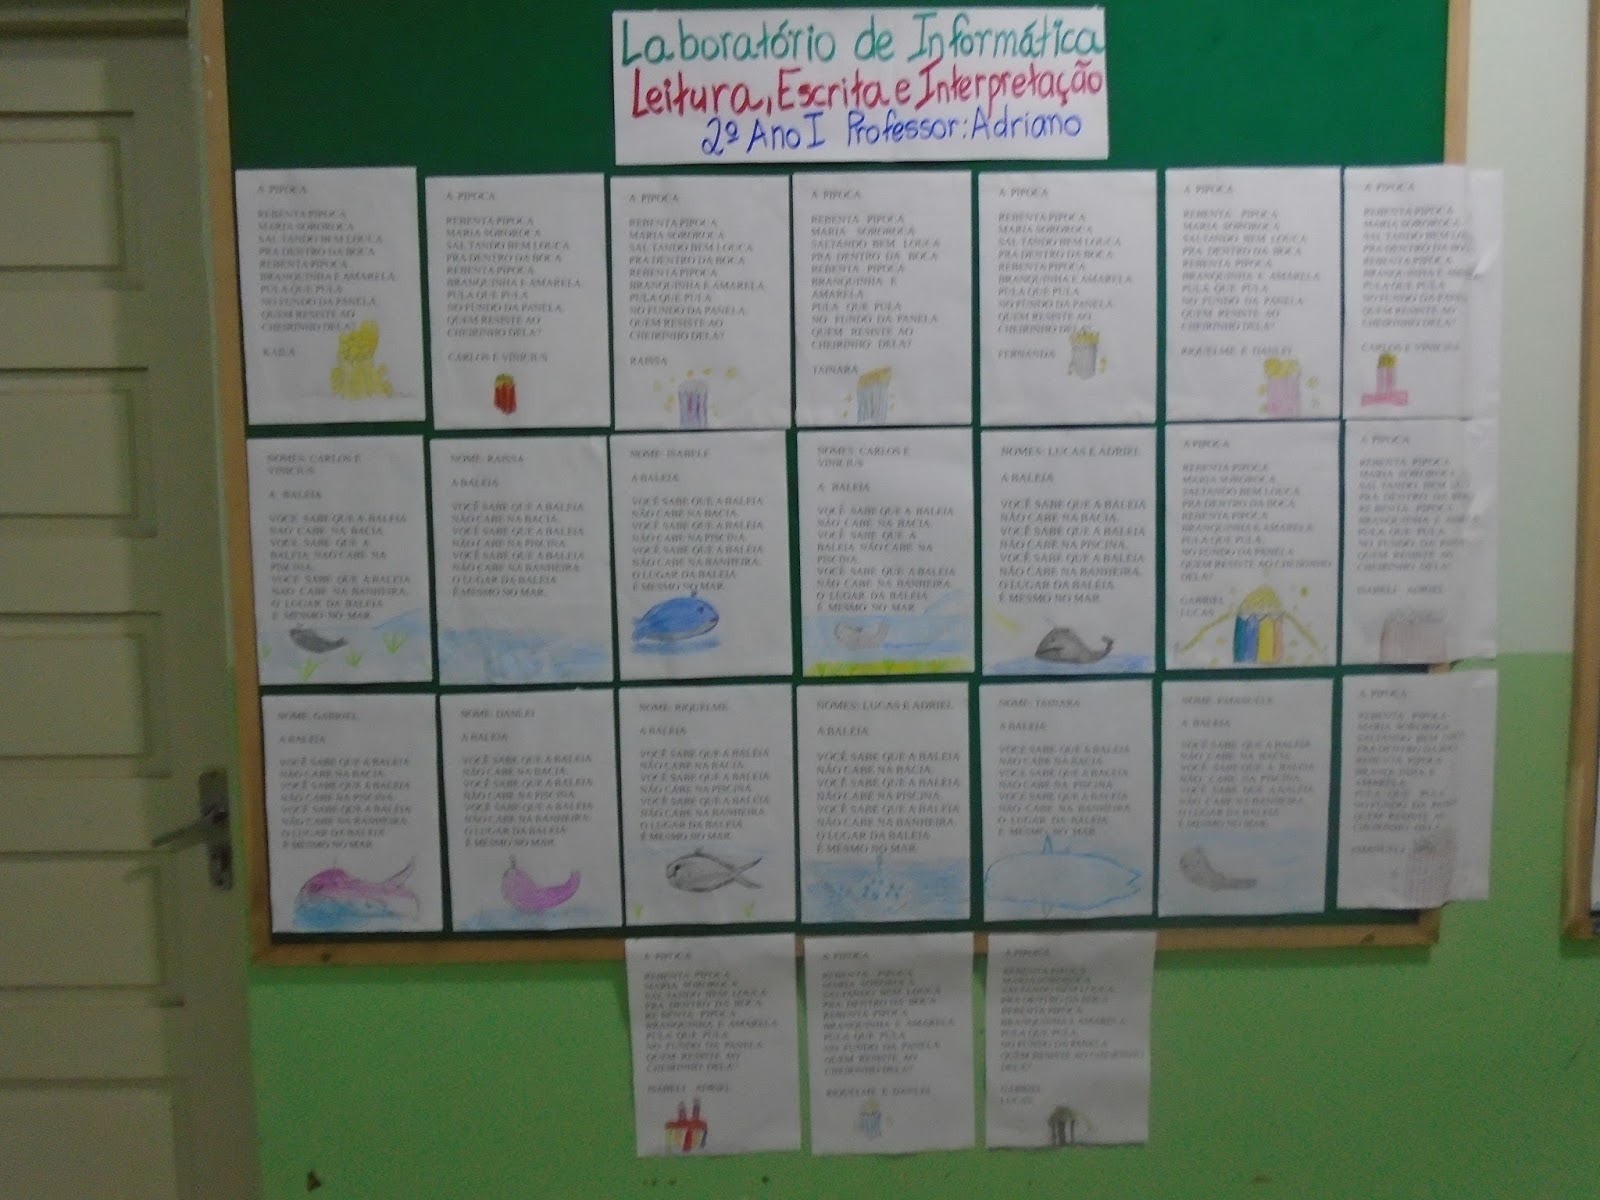 Laboratório de Informática
Leitura, Escrita e Interpretação
2º Ano I Professor: Adriano
A PIPOCA
REBENTA PIPOCA
MARIA SOROROCA
SALTANDO BEM LOUCA
PRA DENTRO DA BOCA
REBENTA PIPOCA
BRANQUINHA E AMARELA
PULA QUE PULA
NO FUNDO DA PANELA
QUEM RESISTE AO
CHEIRINHO DELA?
A PIPOCA
REBENTA PIPOCA
MARIA SOROROCA
SALTANDO BEM LOUCA
PRA DENTRO DA BOCA
REBENTA PIPOCA
BRANQUINHA E AMARELA
PULA QUE PULA
NO FUNDO DA PANELA
QUEM RESISTE AO
CHEIRINHO DELA?
CARLOS E VINICIUS
A PIPOCA
REBENTA PIPOCA
MARIA SOROROCA
SALTANDO BEM LOUCA
PRA DENTRO DA BOCA
REBENTA PIPOCA
BRANQUINHA E AMARELA
PULA QUE PULA
NO FUNDO DA PANELA
QUEM RESISTE AO
CHEIRINHO DELA?
RAISSA
A PIPOCA
REBENTA PIPOCA
MARIA SOROROCA
SALTANDO BEM LOUCA
PRA DENTRO DA BOCA
REBENTA PIPOCA
BRANQUINHA E
AMARELA
PULA QUE PULA
NO FUNDO DA PANELA
QUEM RESISTE AO
CHEIRINHO DELA?
TAINARA
A PIPOCA
REBENTA PIPOCA
MARIA SOROROCA
SALTANDO BEM LOUCA
PRA DENTRO DA BOCA
REBENTA PIPOCA
BRANQUINHA E AMARELA
PULA QUE PULA
NO FUNDO DA PANELA
QUEM RESISTE AO
CHEIRINHO DELA?
FERNANDA
A PIPOCA
REBENTA PIPOCA
MARIA SOROROCA
SALTANDO BEM LOUCA
PRA DENTRO DA BOCA
REBENTA PIPOCA
BRANQUINHA E AMARELA
PULA QUE PULA
NO FUNDO DA PANELA
QUEM RESISTE AO
CHEIRINHO DELA?
RIQUELME E DANLEI
A PIPOCA
REBENTA PIPOCA
MARIA SOROROCA
SALTANDO BEM
PRA DENTRO DA
REBENTA PIPOCA
BRANQUINHA E
PULA QUE PULA
NO FUNDO DA
QUEM RESISTE AO
CHEIRINHO DELA?
CARLOS E VINICIUS
NOMES: CARLOS E
VINICIUS
A BALEIA
VOCÊ SABE QUE A BALEIA
NÃO CABE NA BACIA.
VOCÊ SABE QUE A
BALEIA NÃO CABE NA
PISCINA.
VOCÊ SABE QUE A BALEIA
NÃO CABE NA BANHEIRA.
O LUGAR DA BALEIA
É MESMO NO MAR.
NOME: RAISSA
A BALEIA
VOCÊ SABE QUE A BALEIA
NÃO CABE NA BACIA.
VOCÊ SABE QUE A BALEIA
NÃO CABE NA PISCINA
VOCÊ SABE QUE A BALEIA
NÃO CABE NA BANHEIRA.
O LUGAR DA BALEIA
É MESMO NO MAR.
NOME: ISABELE
A BALEIA
VOCÊ SABE QUE A BALEIA
NÃO CABE NA BACIA.
VOCÊ SABE QUE A BALEIA
NÃO CABE NA PISCINA.
VOCÊ SABE QUE A BALEIA
NÃO CABE NA BANHEIRA.
O LUGAR DA BALEIA
É MESMO NO MAR.
NOMES: CARLOS E
VINICIUS
A BALEIA
VOCÊ SABE QUE A BALEIA
NÃO CABE NA BACIA.
VOCÊ SABE QUE A
BALEIA NÃO CABE NA
PISCINA.
VOCÊ SABE QUE A BALEIA
NÃO CABE NA BANHEIRA.
O LUGAR DA BALEIA
É MESMO NO MAR
NOMES: LUCAS E ADRIEL
A BALEIA
VOCÊ SABE QUE A BALEIA
NÃO CABE NA BACIA.
VOCÊ SABE QUE A BALEIA
NÃO CABE NA PISCINA.
VOCÊ SABE QUE A BALEIA
NÃO CABE NA BANHEIRA.
O LUGAR DA BALEIA
É MESMO NO MAR.
A PIPOCA
REBENTA PIPOCA
MARIA SOROROCA
SALTANDO BEM LOUCA
PRA DENTRO DA BOCA
REBENTA PIPOCA
BRANQUINHA E AMARELA
PULA QUE PULA.
NO FUNDO DA PANELA
QUEM RESISTE AO CHEIRINHO
DELA?
GABRIEL
LUCAS
A PIPOCA
REBENTA PIPOCA
MARIA SOROROCA
SAL TANDO BEM
PRA DENTRO DA BOCA
RE BENTA PIPOCA
BRANQUINHA E
PULA QUE PULA
NO FUNDO DA
QUEM RESISTE AO
CHEIRINHO DELA?
ISABELI ADRIEL
NOME: GABRIEL
A BALEIA
VOCÊ SABE QUE A BALEIA
NÃO CABE NA BACIA.
VOCÊ SABE QUE A BALEIA
NÃO CABE NA PISCINA.
VOCÊ SABE QUE A BALEIA
NÃO CABE NA BANHEIRA.
O LUGAR DA BALEIA
É MESMO NO MAR.
NOME: DANLEI
A BALEIA
VOCÊ SABE QUE A BALEIA
NÃO CABE NA BACIA.
VOCÊ SABE QUE A BALEIA
NÃO CABE NA PISCINA
VOCÊ SABE QUE A BALEIA
NÃO CABE NA BANHEIRA.
O LUGAR DA BALEIA
É MESMO NO MAR.
NOME: RIQUELME
A BALEIA
VOCÊ SABE QUE A BALEIA
NÃO CABE NA BACIA.
VOCÊ SABE QUE A BALEIA
NÃO CABE NA PISCINA
VOCÊ SABE QUE A BALEIA
NÃO CABE NA BANHEIRA.
O LUGAR DA BALEIA
É MESMO NO MAR.
NOMES: LUCAS E ADRIEL
A BALEIA
VOCÊ SABE QUE A BALEIA
NÃO CABE NA BACIA.
VOCÊ SABE QUE A BALEIA
NÃO CABE NA PISCINA.
VOCÊ SABE QUE A BALEIA
NÃO CABE NA BANHEIRA.
O LUGAR DA BALEIA
É MESMO NO MAR.
NOME: TAINARA
A BALEIA
VOCÊ SABE QUE A BALEIA
NÃO CABE NA BACIA.
VOCÊ SABE QUE A BALEIA
NÃO CABE NA PISCINA
VOCÊ SABE QUE A BALEIA
NÃO CABE NA BANHEIRA
O LUGAR DA BALEIA
É MESMO NO MAR
NOME: EMANUELE
A BALEIA
VOCÊ SABE QUE A BALEIA
NÃO CABE NA BACIA.
VOCÊ SABE QUE A BALEIA
NÃO CABE NA PISCINA
VOCÊ SABE QUE A BALEIA
NÃO CABE NA BANHEIRA
O LUGAR DA BALEIA
É MESMO NO MAR.
A PIPOCA
REBENTA PIPOCA
MARIA SOROROCA
SALTANDO BEM
PRA DENTRO DA
REBENTA PIPOCA
BRANQUINHA E
AMARELA
PULA QUE PULA
NO FUNDO DA
QUEM RESISTE AO
CHEIRINHO DELA
EMANUELI
A PIPOCA
REBENTA PIPOCA
MARIA SOROROCA
SAL TANDO BEM LOUCA
PRA DENTRO DA BOCA
RE BENTA PIPOCA
BRANQUINHA E AMARELA
PULA QUE PULA
NO FUNDO DA PANELA
QUEM RESISTE AO
CHEIRINHO DELA?
ISABELI ADRIEL
A PIPOCA
REBENTA PIPOCA
MARIA SOROROCA
SALTANDO BEM LOUCA
PRA DENTRO DA BOCA
REBENTA PIPOCA
BRANQUINHA E AMARELA
PULA QUE PULA
NO FUNDO DA PANELA
QUEM RESISTE AO
CHEIRINHO DELA?
RIQUELME E DANLEI
A PIPOCA
REBENTA PIPOCA
MARIA SOROROCA
SALTANDO BEM LOUCA
PRA DENTRO DA BOCA
REBENTA PIPOCA
BRANQUINHA E AMARELA
PULA QUE PULA
NO FUNDO DA PANELA
QUEM RESISTE AO CHEIRINHO
DELA?
GABRIEL
LUCAS